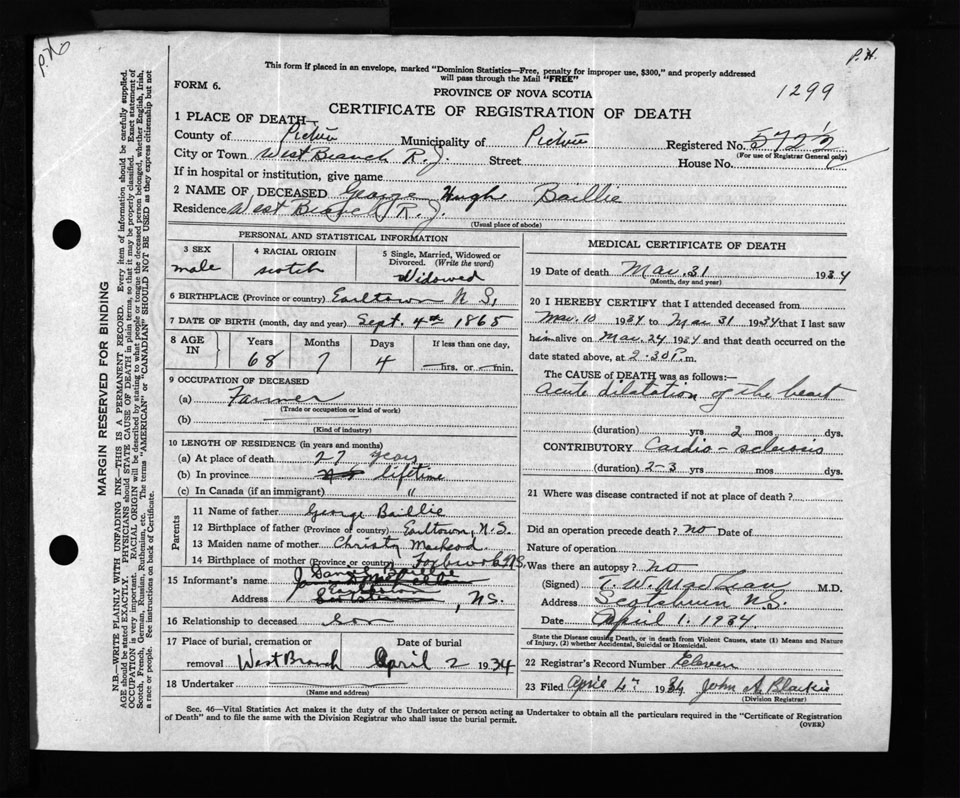 P.H.
P.H.
This form if placed in an envelope, marked "Dominion Statistics—Free, penalty for improper use, $300," and properly addressed
will pass through the Mail "FREE"
FORM 6.
PROVINCE OF NOVA SCOTIA
1299
CERTIFICATE OF REGISTRATION OF DEATH
1 PLACE OF DEATH—
County of Pictou Municipality of Pictou Registered No. 572 1/2
(For use of Registrar General only)
City or Town West Branch R. J. Street House No.
If in hospital or institution, give name
2 NAME OF DECEASED George Hugh Baillie
Residence West Branch R. J.
(Usual place of abode)
PERSONAL AND STATISTICAL INFORMATION
3 SEX male
4 RACIAL ORIGIN scotch
5 Single, Married, Widowed or
Divorced. (Write the word)
Widowed
6 BIRTHPLACE (Province or country) Earltown N S,
7 DATE OF BIRTH (month, day and year) Sept. 4th 1865
8 AGE IN
Years Months Days If less than one day,
68 7 4 — hrs. or — min.
9 OCCUPATION OF DECEASED
(a) Farmer
(Trade or occupation or kind of work)
(b)
(Kind of industry)
10 LENGTH OF RESIDENCE (in years and months)
(a) At place of death 27 years
(b) In province lifetime
(c) In Canada (if an immigrant) "
Parents
11 Name of father George Baillie
12 Birthplace of father (Province or country) Earltown, N.S.
13 Maiden name of mother Christy MacLeod
14 Birthplace of mother (Province or country) N.S.
15 Informant's name Baillie
Address , N.S.
16 Relationship to deceased son
17 Place of burial, cremation or Date of burial
removal West Branch April 2 1934
18 Undertaker
(Name and address)
MEDICAL CERTIFICATE OF DEATH
19 Date of death Mar. 31 1934
(Month, day and year)
20 I HEREBY CERTIFY that I attended deceased from
Mar. 10 1934 to Mar 31 1934 that I last saw
him alive on Mar. 24 1934 and that death occurred on the
date stated above, at 2.30 P.m.
The CAUSE of DEATH was as follows:—
Acute dilatation of the heart
(duration) yrs 2 mos dys.
CONTRIBUTORY Cardio-sclerosis
(duration) 2-3 yrs mos. dys.
21 Where was disease contracted if not at place of death?
Did an operation precede death? no Date of
Nature of operation
Was there an autopsy? no
(Signed) T. W. MacLean M.D.
Address Scotsburn N.S.
Date April 1. 1934.
State the Disease causing Death, or in death from Violent Causes, state (1) Means and Nature
of Injury, (2) whether Accidental, Suicidal or Homicidal.
22 Registrar's Record Number Eleven
23 Filed April 4th 1934 John A. Blaikie
(Division Registrar)
Sec. 46—Vital Statistics Act makes it the duty of the Undertaker or person acting as Undertaker to obtain all the particulars required in the "Certificate of Registration
of Death" and to file the same with the Division Registrar who shall issue the burial permit.
(OVER)
MARGIN RESERVED FOR BINDING
N.B.—WRITE PLAINLY WITH UNFADING INK—THIS IS A PERMANENT RECORD. Every item of information should be carefully supplied.
AGE should be stated EXACTLY. PHYSICIANS should STATE CAUSE OF DEATH in plain terms, so that it may be properly classified. Exact statement of
OCCUPATION is very important. RACIAL ORIGIN will be described by stating to what people or tongue the deceased person belonged, whether English, Irish,
Scotch, French, German, Russian, Ruthenian, etc. The terms "AMERICAN" or "CANADIAN" SHOULD NOT BE USED as they express citizenship but not
a race or people. See instructions on back of Certificate.